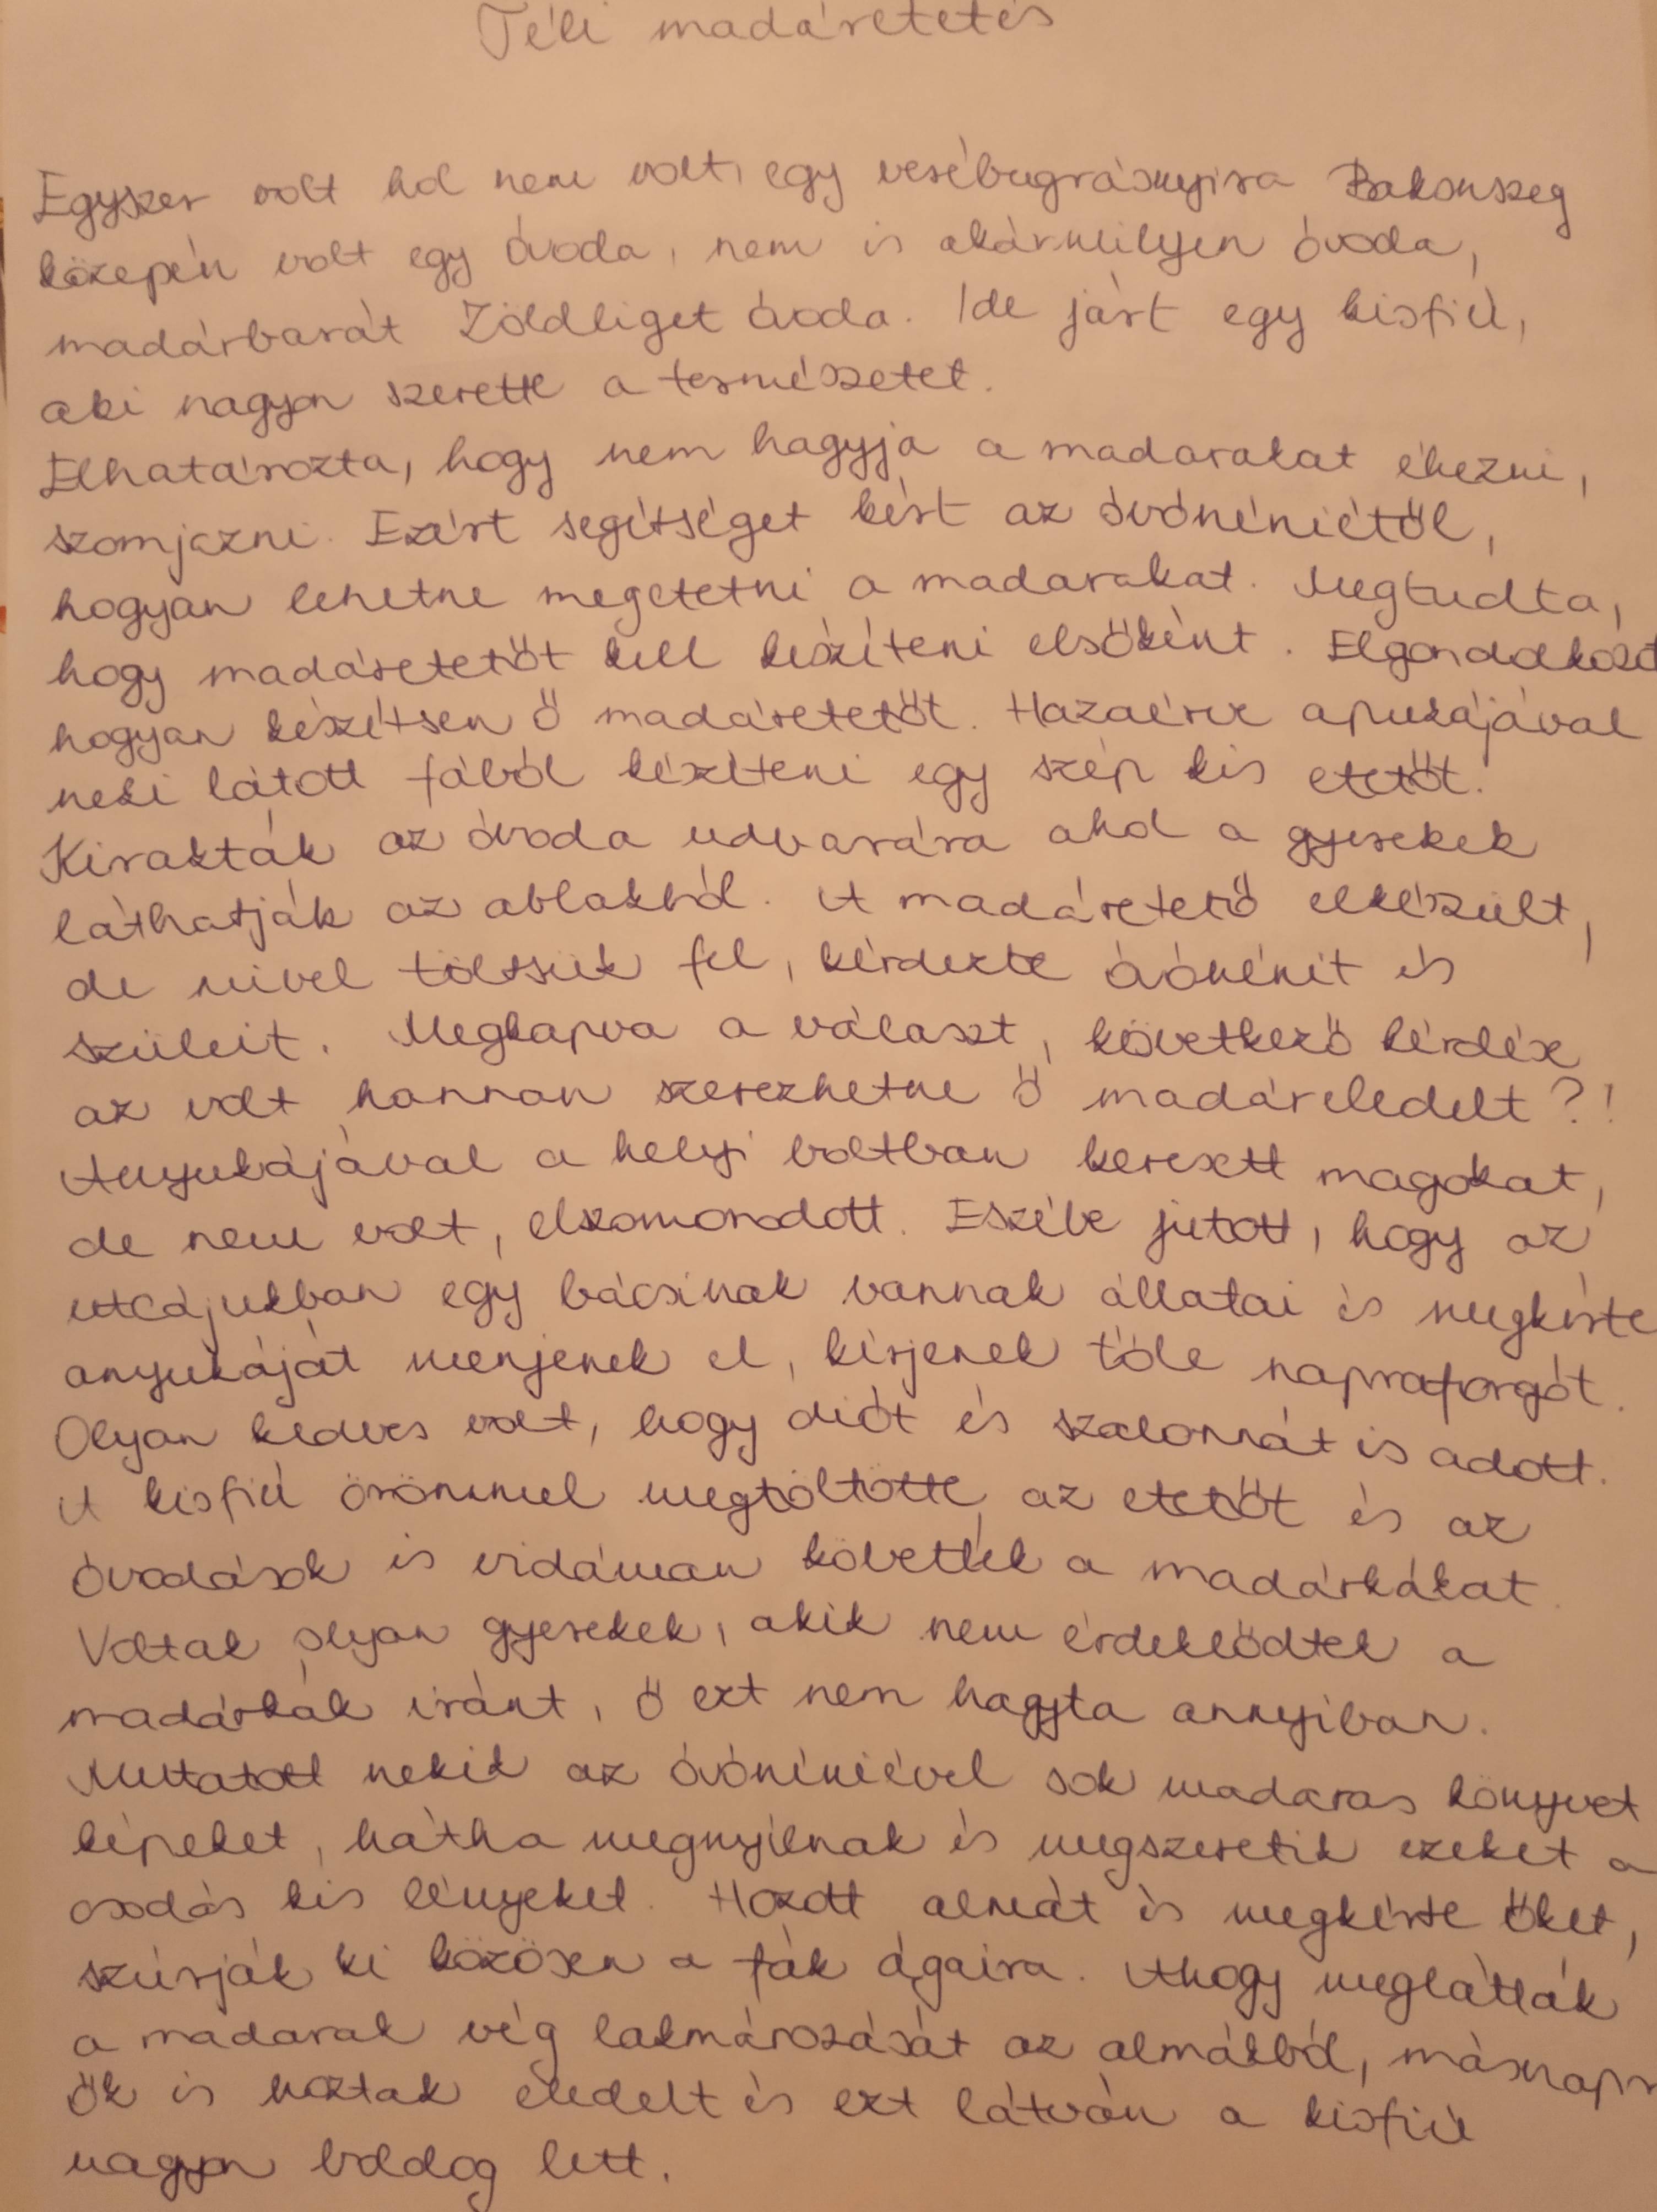 Téli madáretetés
Egyszer volt hol nem volt, egy verébugrásnyira Bakonszeg
közepén volt egy óvoda, nem is akármilyen óvoda,
madárbarát Zöldliget óvoda. Ide járt egy kisfiú,
aki nagyon szerette a természetet.
Elhatározta, hogy nem hagyja a madarakat éhezni,
szomjazni. Ezért segítséget kért az óvónéniétől,
hogyan lehetne megetetni a madarakat. Megtudta,
hogy madáretetőt kell készíteni elsőként. Elgondolkozott
hogyan készítsen ő madáretetőt. Hazaérve apukájával
neki látott fából készíteni egy szép kis etetőt.
Kirakták az óvoda udvarára ahol a gyerekek
láthatják az ablakból. A madáretető elkészült,
de mivel töltsük fel, kérdezte óvónénit és
szüleit. Megkapva a választ, következő kérdése
az volt honnan szerezhetne ő madáreledelt?!
Anyukájával a helyi boltban keresett magokat,
de nem volt, elszomorodott. Eszébe jutott, hogy az
utcájukban egy bácsinak vannak állatai és megkérte
anyukáját menjenek el, kérjenek tőle napraforgót.
Olyan kedves volt, hogy diót és szalonnát is adott.
A kisfiú örömmel megtöltötte az etetőt és az
óvodások is vidáman követték a madárkákat.
Voltak olyan gyerekek, akik nem érdeklődtek a
madárkák iránt, ő ezt nem hagyta annyiban.
Mutatott nekik az óvónéniével sok madaras könyvet
képeket, hátha megnyílnak és megszeretik ezeket a
csodás kis lényeket. Hozott almát és megkérte őket,
szúrják ki közösen a fák ágaira. Ahogy meglátták
a madarak vég lakmározását az almákból, másnapra
ők is hoztak eledelt és ezt látván a kisfiú
nagyon boldog lett.